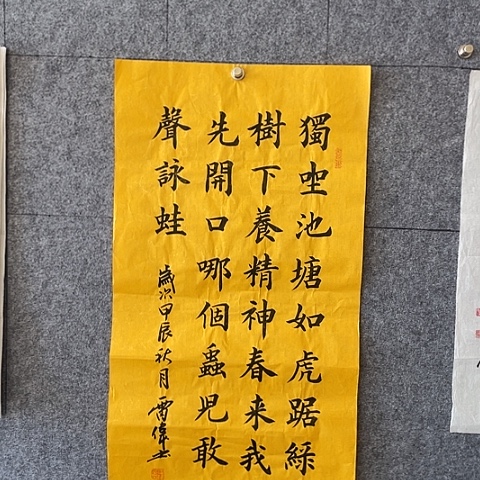 獨坐池塘如虎踞綠
樹下養精神春来我
先開口哪個蟲児敢
聲詠蛙
歲次甲辰秋月雷偉书